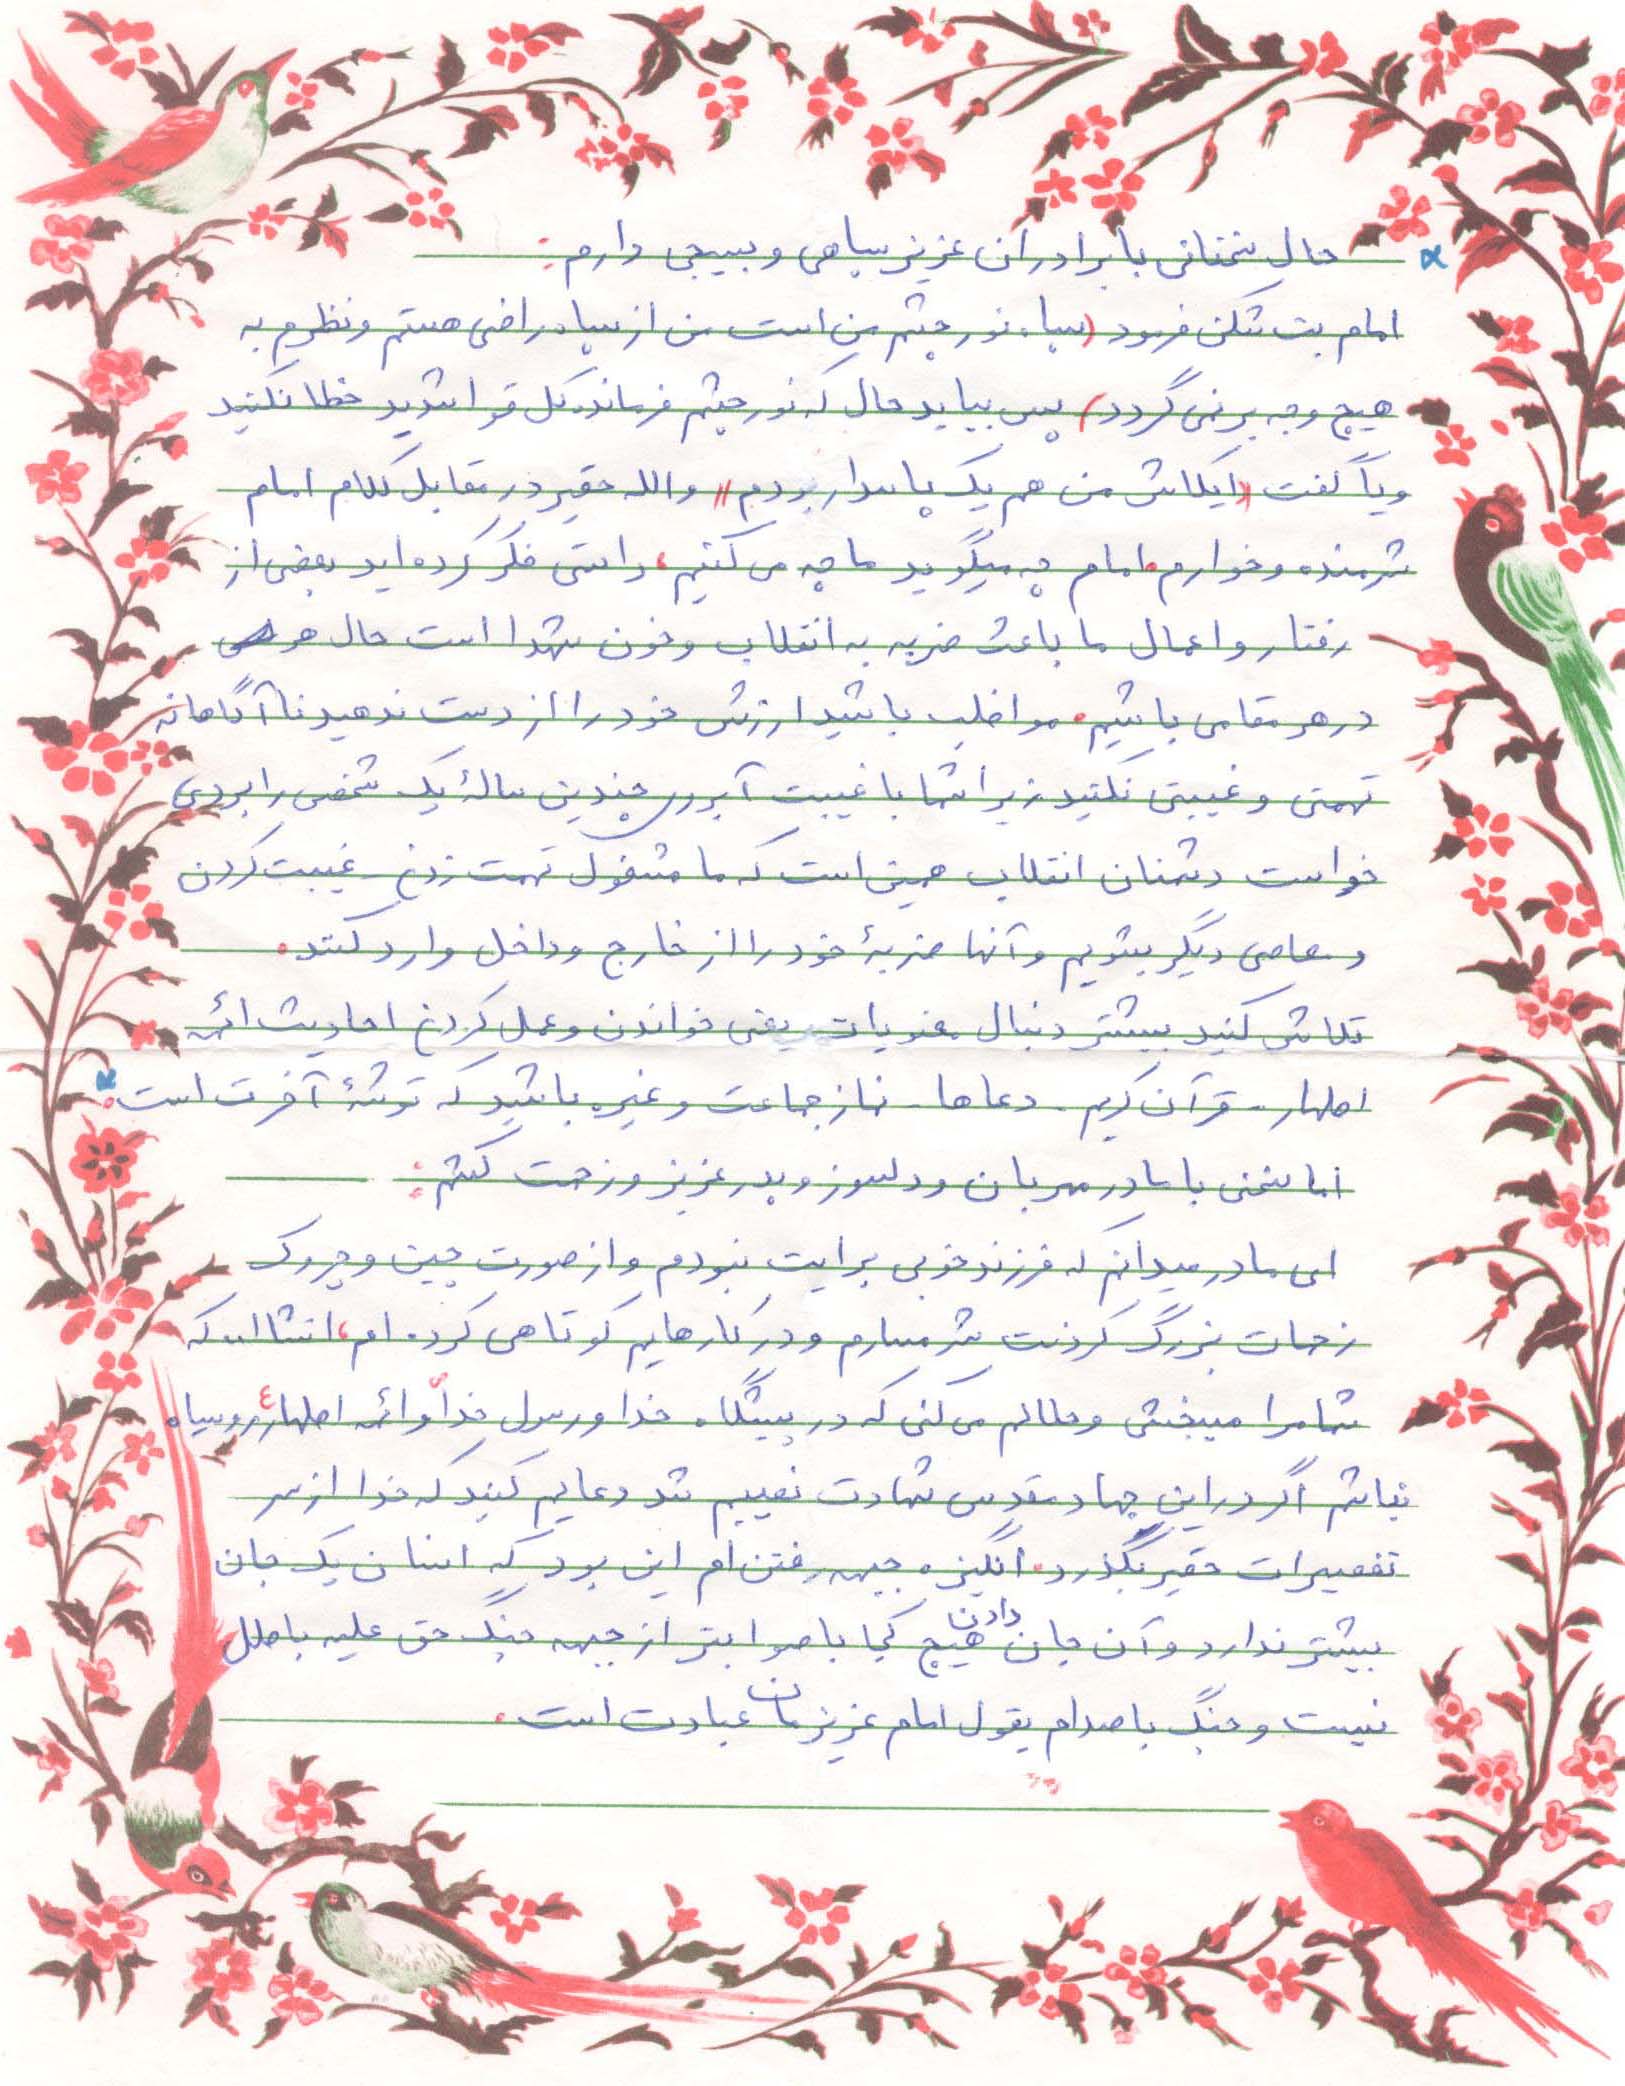 حال سخنانی با برادران عزیز سپاهی و بسیجی دارم:
امام بت شکن فرمود (سپاه نور چشم من است من از سپاه راضی هستم و نظرم به
هیچ وجه برنمی گردد) پس بیایید حال که نور چشم فرمانده کل قوا شدید خطا نکنید
ویا گفت «ایکاش من هم یک پاسدار بودم» والله حقیر در مقابل کلام امام
شرمنده و خوارم. امام چه میگوید ما چه می کنیم، راستی فکر کرده اید بعضی از
رفتار و اعمال ما باعث ضربه به انقلاب و خون شهدا است حال هر کسی
در هر مقامی باشیم. مواظب باشید ارزش خود را از دست ندهید ناآگاهانه
تهمتی و غیبتی نکنید زیرا شما با غیبت آبروی چندین سالهٔ یک شخصی را بردی
خواست دشمنان انقلاب همین است که ما مشغول تهمت زدن - غیبت کردن
و معاصی دیگر بشویم و آنها ضربهٔ خود را از خارج و داخل وارد کنند.
تلاش کنید بیشتر دنبال معنویات یعنی خواندن و عمل کردن احادیث ائمه
اطهار - قرآن کریم - دعاها - نماز جماعت و غیره باشید که توشهٔ آخرت است.
اما سخنی با مادر مهربان و دلسوز و پدر عزیز و زحمت کشم:
ای مادر میدانم که فرزند خوبی برایت نبودم و از صورت چین و چروک
زحمات بزرگ کردنت شرمسارم و در کارهایم کوتاهی کرده ام، انشااله که
شما مرا میبخشی و حلالم می کنی که در پیشگاه خدا و رسول خدا و ائمه اطهار ع روسیاه
نباشم اگر در این جهاد مقدس شهادت نصیبم شد دعایم کنید که خدا از سر
تقصیرات حقیر بگذرد. انگیزه جبهه رفتن ام این بود که انسان یک جان
بیشتر ندارد و آن جان دادن هیچ کجا باصوابتر از جبهه جنگ حق علیه باطل
نیست و جنگ با صدام بقول امام عزیزمان عبادت است.